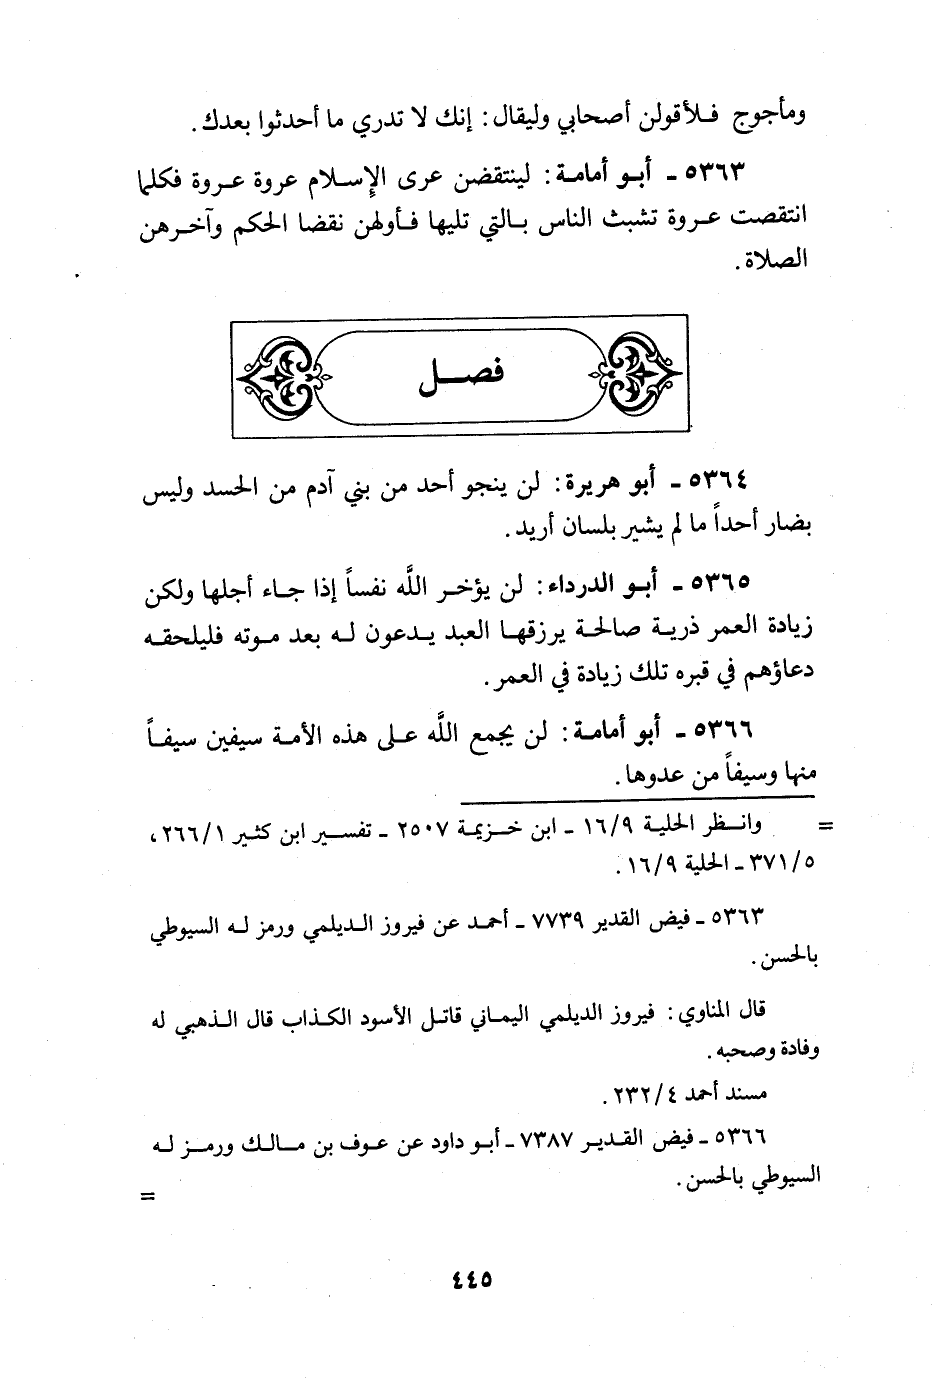 ومأجوج فلأقولن أصحابي وليقال: إنك لا تدري ما أحدثوا بعدك.
٥٣٦٣ ـ أبو أمامة: لينتقضن عرى الإسلام عروة عروة فكلما
انتقصت عروة تشبث الناس بالتي تليها فأولهن نقضا الحكم وآخرهن
الصلاة.
فصل
٥٣٦٤ ـ أبو هريرة: لن ينجو أحد من بني آدم من الحسد وليس
بضار أحداً ما لم يشير بلسان أريد.
٥٣٦٥ ـ أبو الدرداء: لن يؤخر اللَّه نفساً إذا جاء أجلها ولكن
زيادة العمر ذرية صالحة يرزقها العبد يدعون له بعد موته فليلحقه
دعاؤهم في قبره تلك زيادة في العمر.
٥٣٦٦ ـ أبو أمامة: لن يجمع اللَّه على هذه الأمة سيفين سيفاً
منها وسيفاً من عدوها.
= وانظر الحلية ١٦/٩ ـ ابن خزيمة ٢٥٠٧ ـ تفسير ابن كثير ٢٦٦/١،
٣٧١/٥ ـ الحلية ١٦/٩.
٥٣٦٣ ـ فيض القدير ٧٧٣٩ ـ أحمد عن فيروز الديلمي ورمز له السيوطي
بالحسن.
قال المناوي: فيروز الديلمي اليماني قاتل الأسود الكذاب قال الذهبي له
وفادة وصحبه.
مسند أحمد ٢٣٢/٤.
٥٣٦٦ ـ فيض القدير ٧٣٨٧ ـ أبو داود عن عوف بن مالك ورمز له
السيوطي بالحسن.
=
٤٤٥